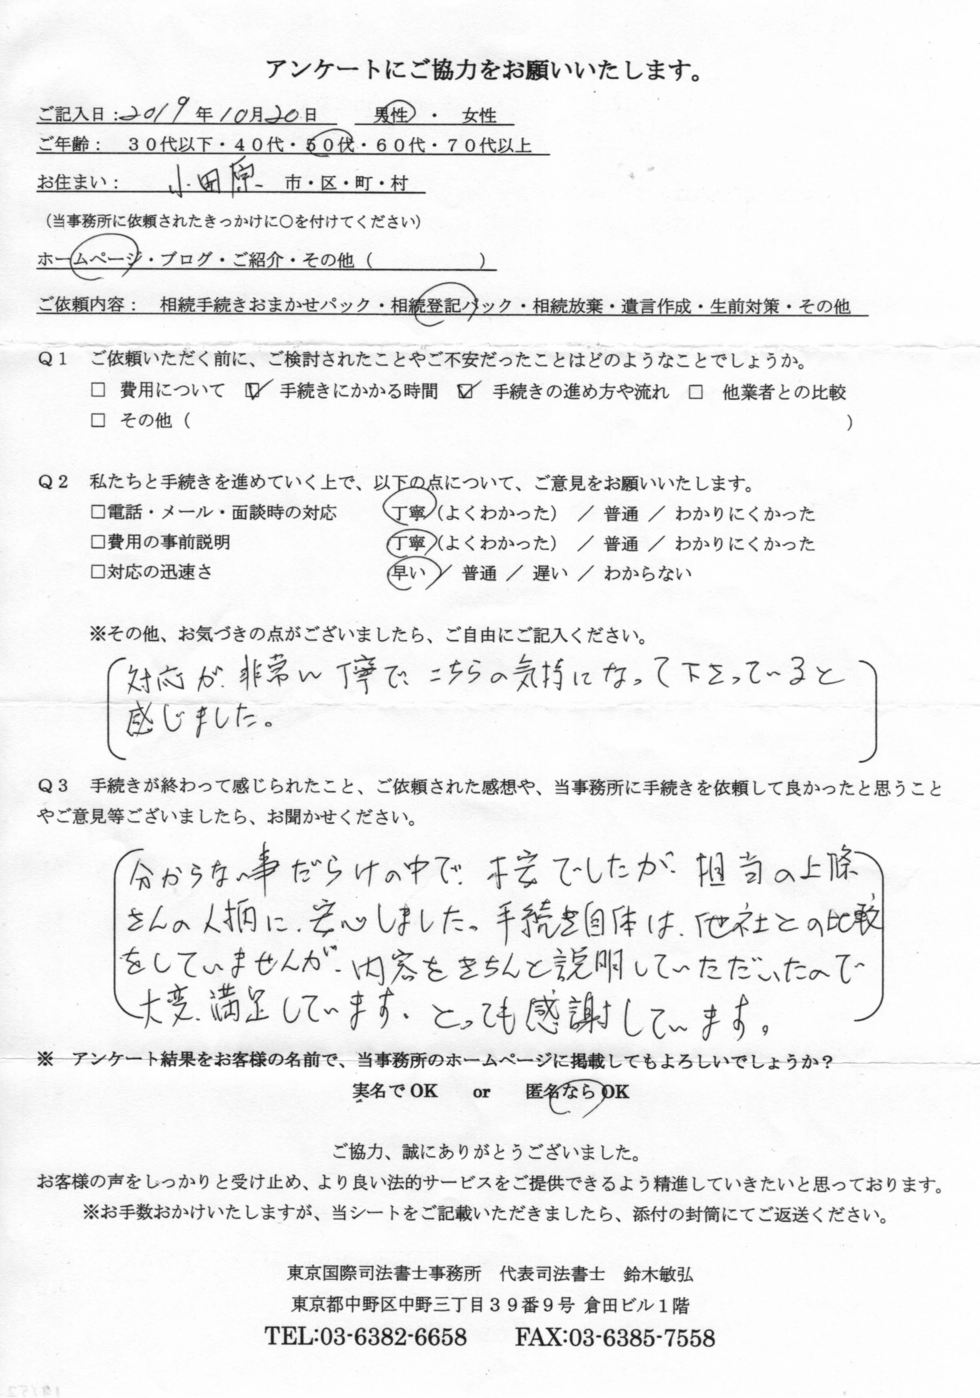 アンケートにご協力をお願いいたします。
ご記入日：2019年10月20日　男性・　女性
ご年齢：　３０代以下・４０代・５０代・６０代・７０代以上
お住まい：　小田原　市・区・町・村
（当事務所に依頼されたきっかけに〇を付けてください）
ホームページ・ブログ・ご紹介・その他（　　　　　　）
ご依頼内容：　相続手続きおまかせパック・相続登記パック・相続放棄・遺言作成・生前対策・その他
Ｑ１　ご依頼いただく前に、ご検討されたことやご不安だったことはどのようなことでしょうか。
□ 費用について　☑ 手続きにかかる時間　☑ 手続きの進め方や流れ　□ 他業者との比較
□ その他（　　　　　　　　　　　　　　　　　　　　）
Ｑ２　私たちと手続きを進めていく上で、以下の点について、ご意見をお願いいたします。
□電話・メール・面談時の対応　丁寧（よくわかった）　／ 普通 ／ わかりにくかった
□費用の事前説明　丁寧（よくわかった）　／ 普通 ／ わかりにくかった
□対応の迅速さ　早い ／ 普通 ／ 遅い ／ わからない
※その他、お気づきの点がございましたら、ご自由にご記入ください。
対応が、非常に 寧で、こちらの気持になって下さっていると
感じました。
Ｑ３　手続きが終わって感じられたこと、ご依頼された感想や、当事務所に手続きを依頼して良かったと思うこと
やご意見等ございましたら、お聞かせください。
分からない事だらけの中で、 でしたが、担当の上條
さんの人柄に、安心しました。手続き自体は、他社との比較
をしていませんが、内容をきちんと説明していただいたので
大変、満足しています、とっても感謝しています。
※　アンケート結果をお客様の名前で、当事務所のホームページに掲載してもよろしいでしょうか？
実名で OK　　or　　匿名なら OK
ご協力、誠にありがとうございました。
お客様の声をしっかりと受け止め、より良い法的サービスをご提供できるよう精進していきたいと思っております。
※お手数おかけいたしますが、当シートをご記載いただきましたら、添付の封筒にてご返送ください。
東京国際司法書士事務所　代表司法書士　鈴木敏弘
東京都中野区中野三丁目３９番９号 倉田ビル１階
TEL:03-6382-6658　　FAX:03-6385-7558